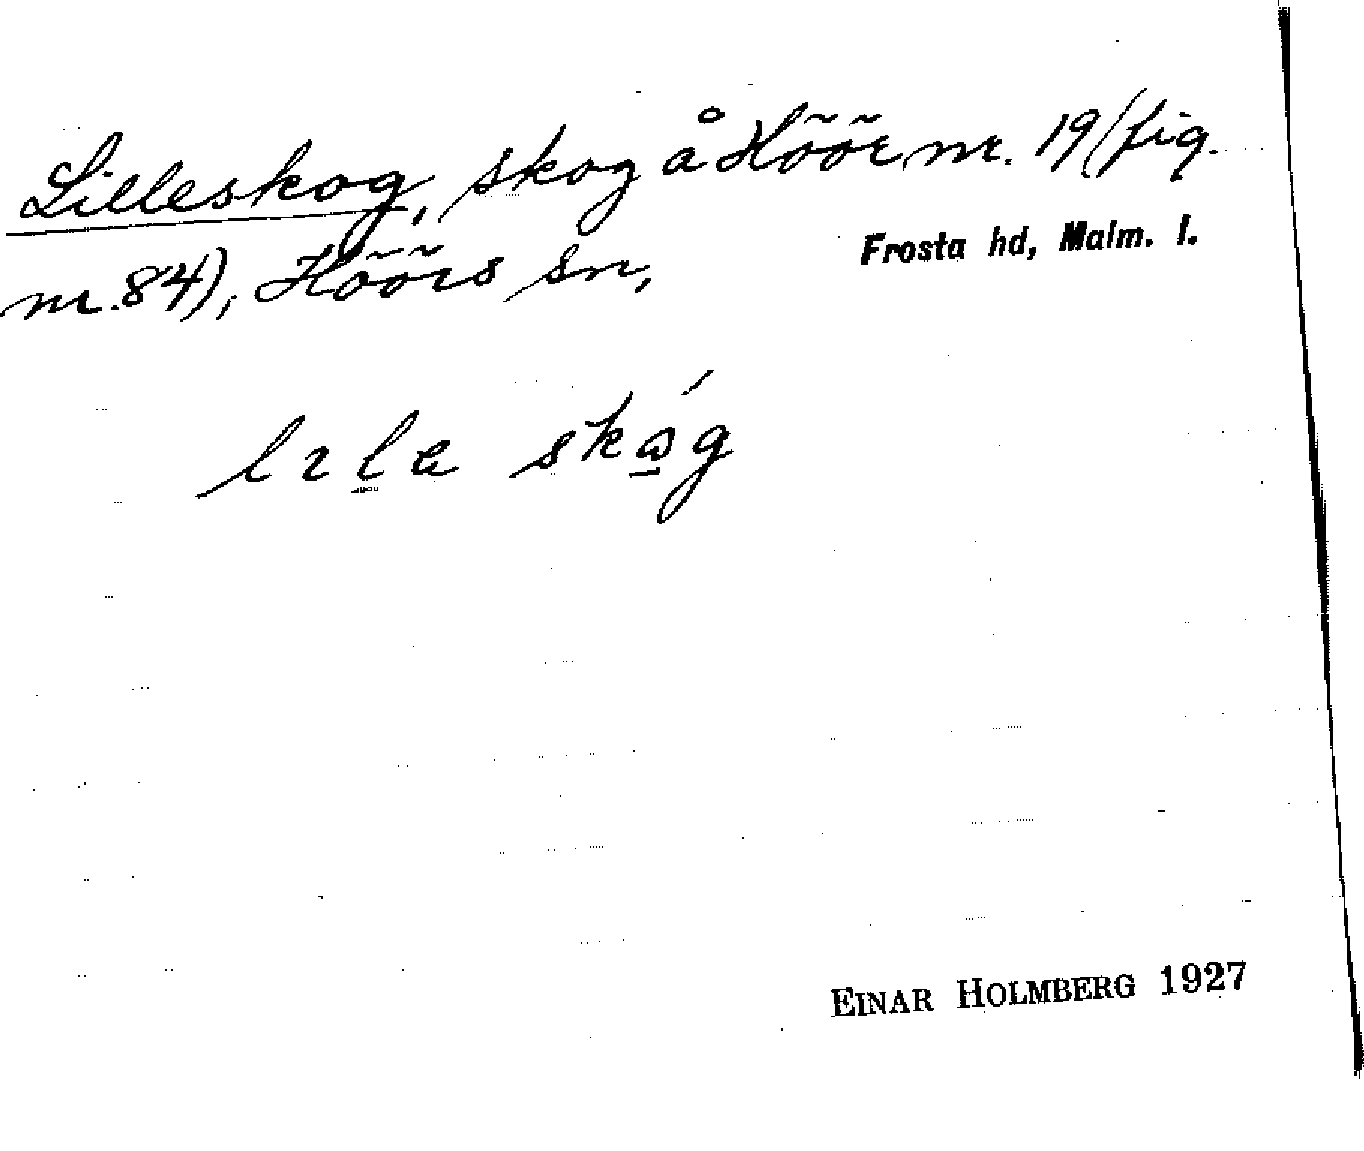 Lilleskog, skog å Höör nr. 19 (fig.
nr. 84), Höörs sn,
Frosta hd, Malm. l.
lıla skǻg
EINAR HOLMBERG 1927